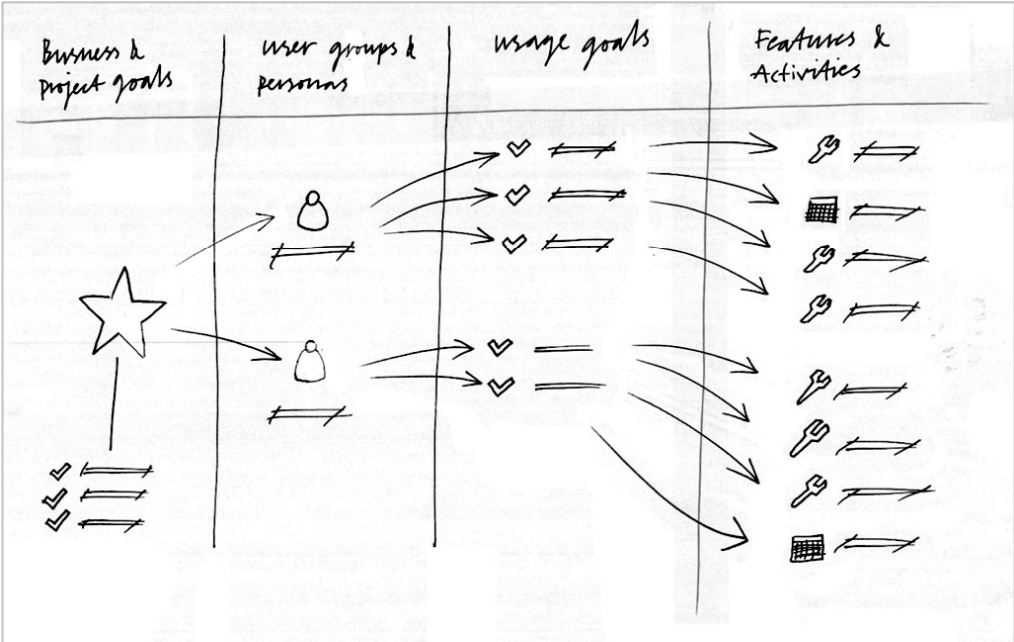 Business &
project goals
user groups &
personas
usage goals
Features &
Activities